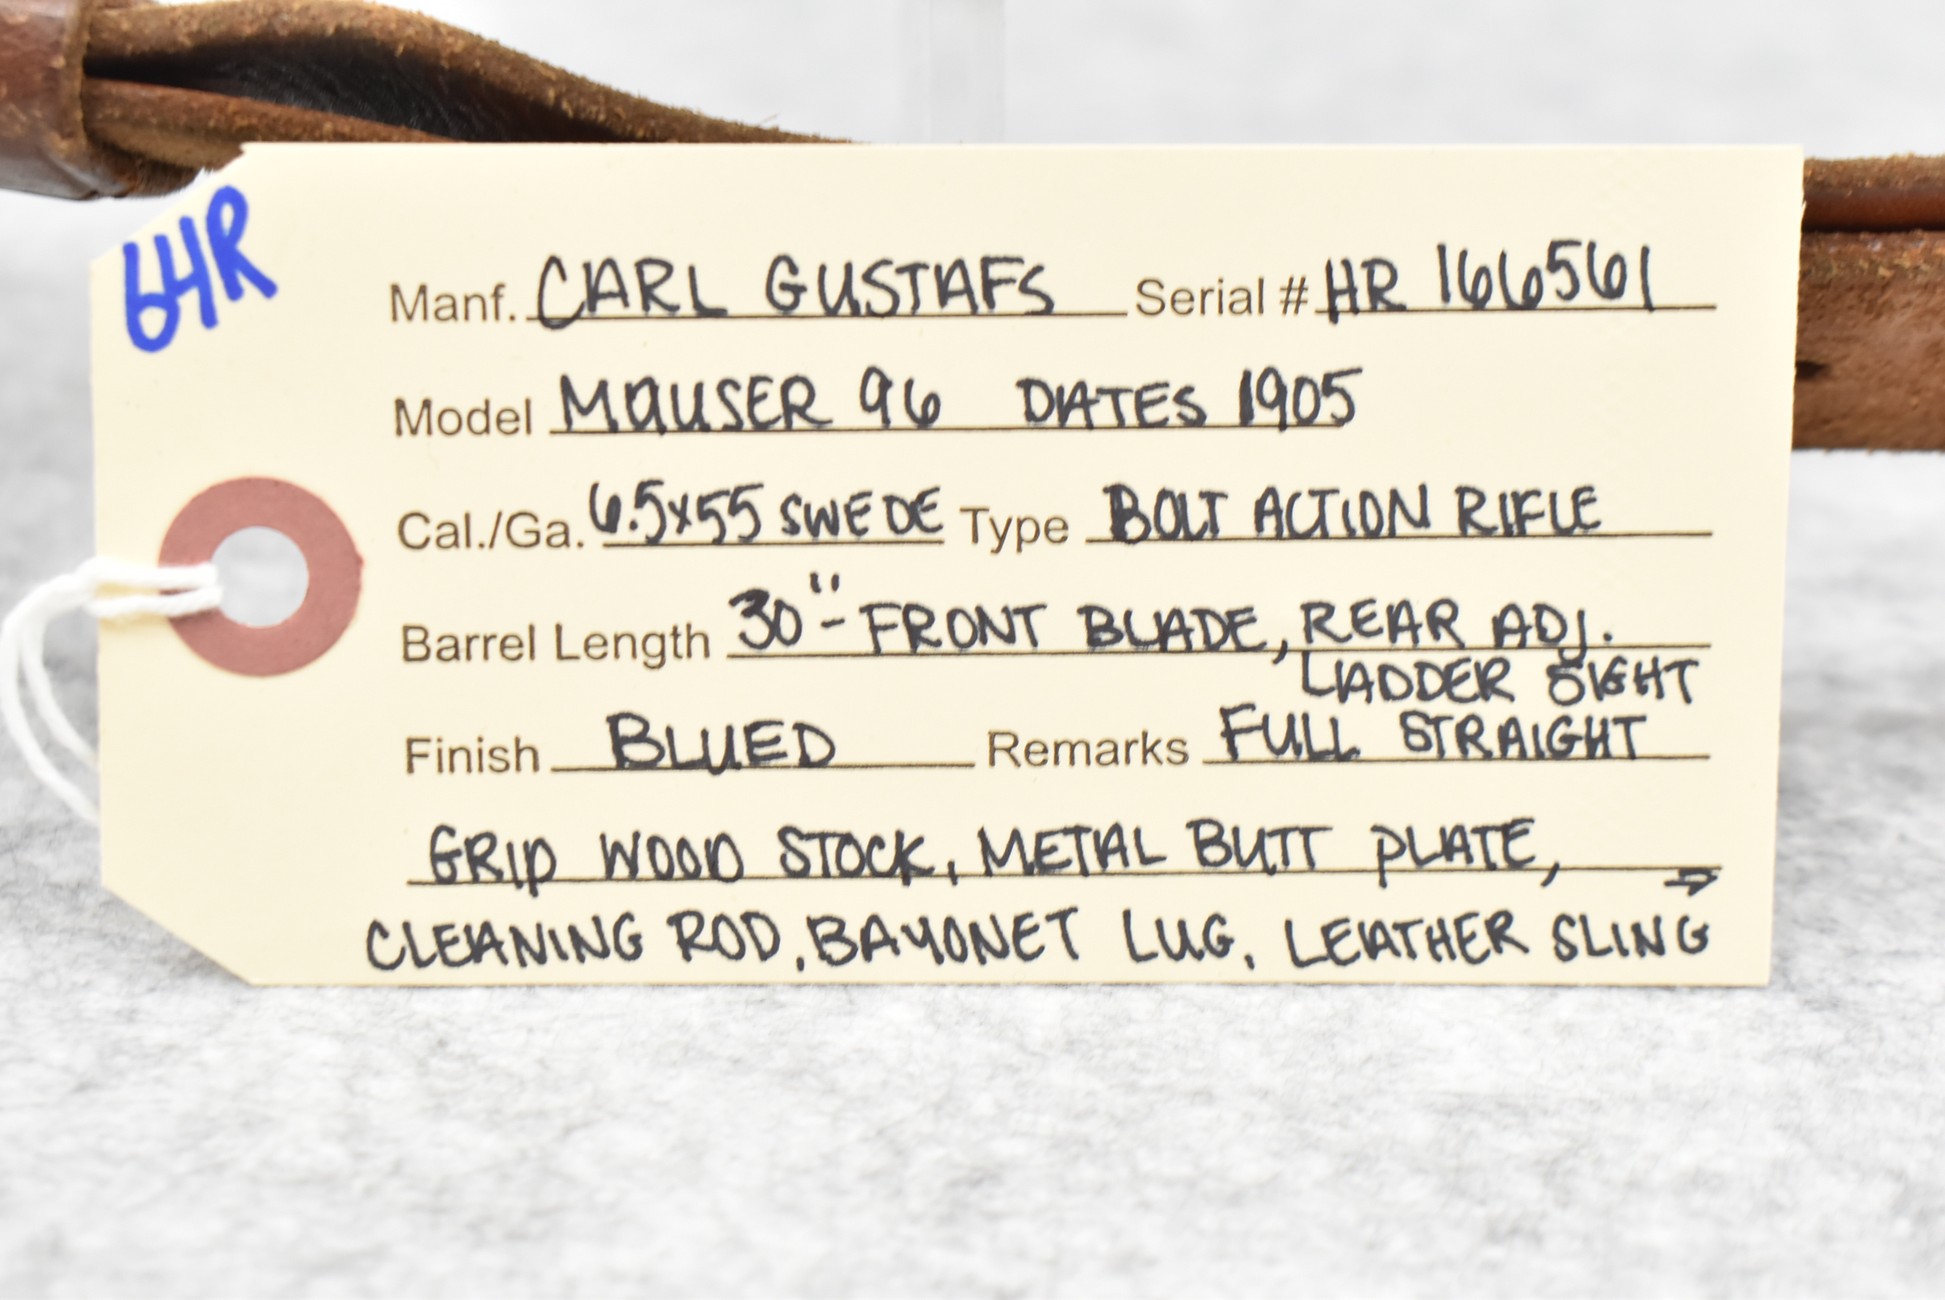 64R
Manf. CARL GUSTAFS Serial # HR 166561
Model MAUSER 96 DATES 1905
Cal./Ga. 6.5x55 SWEDE Type BOLT ACTION RIFLE
Barrel Length 30" - FRONT BLADE, REAR ADJ.
LADDER SIGHT
Finish BLUED Remarks FULL STRAIGHT
GRIP WOOD STOCK, METAL BUTT PLATE, →
CLEANING ROD, BAYONET LUG, LEATHER SLING